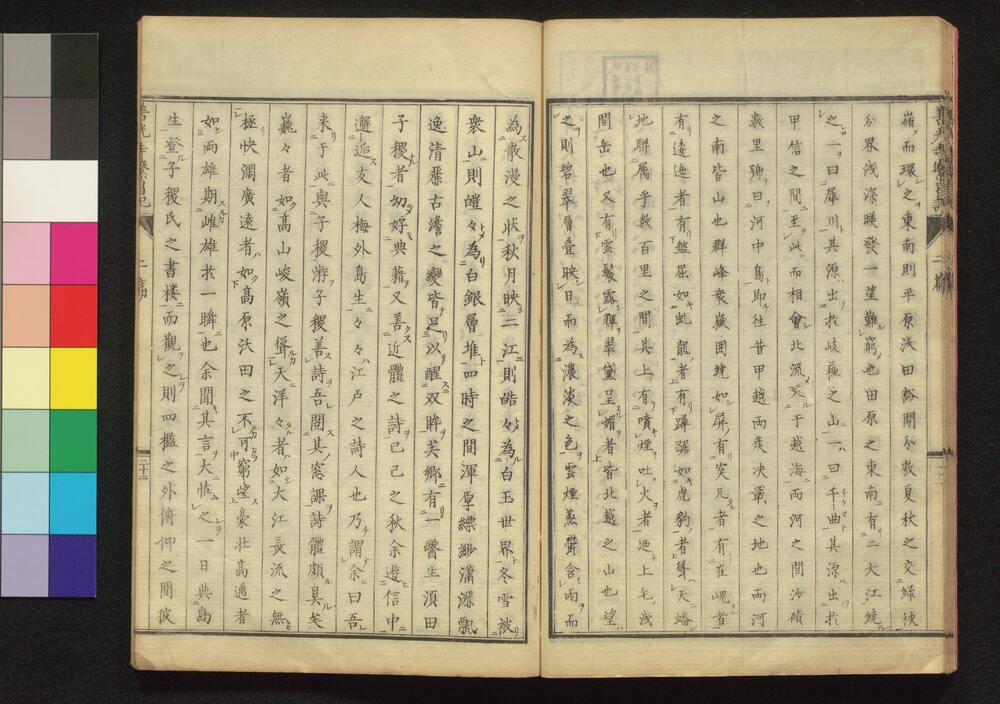 嶺而環之東南則平原沃田豁開分數夏秋之交緑秧
分界浅深暎發一望難窮也田原之東南有二大江繞
之一曰犀川其源出於岐蘓之山一曰千曲其源出於
甲信之間至此而相會北流于越海兩河之間沙磧
數里號曰河中島即往昔甲越兩矦决戰之地也兩河
之南皆山也群峰衆嶽囲繞如屏有突兀者有崔嵬者
有逶迤者有盤屈如虬龍者有蹲踞如虎豹者聳天蟠
地聯属乎数百里之間其上有噴煙吐火者迺上毛浅
間岳也又有雲鬟露翠黛呈媚者皆北越之山也望
之則碧翠層疊映日而為濃淡之色雲煙蒸鬱含雨而
為散漫之状秋月映二江則皓々為白玉世界冬雪被
衆山則皚々為白銀層堆四時之間渾厚縹緲瀟灑飄
逸清癯古澹之變皆足以醒双眸矣郷有一醫生須田
子稷者幼好典籍又善近體之詩己巳之秋余遊信中
邂逅友人梅外島生々々江戸之詩人也乃謂余曰吾
来于此與子稷游子稷善詩吾閲其窓課詩體頗具矣
巍々者如髙山峻嶺之聳天洋々者如大江長流之無
極快濶廣遠者如髙原沃田之不可窮望豪壮髙邁者
如兩雄期雌雄於一瞬也余聞其言大恠之一日與島
生登子稷氏之書楼而觀之則四檻之外俯仰之間彼
善光寺繁昌記 二編 二十二